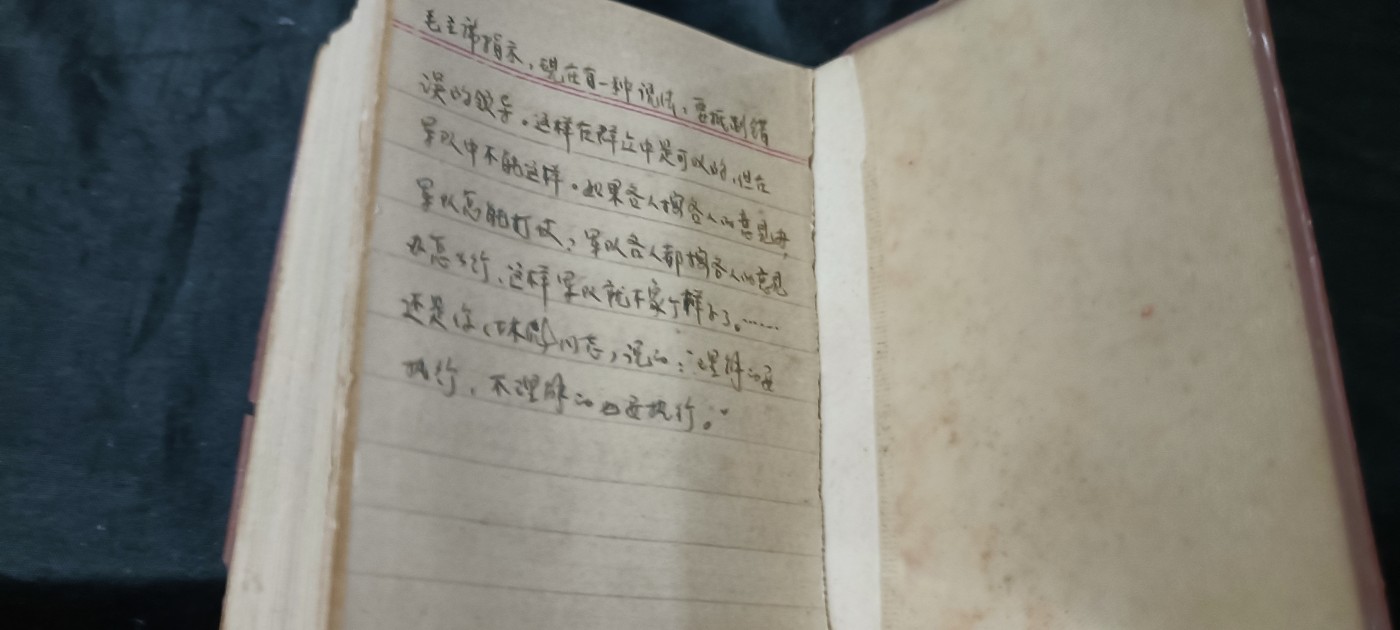 毛主席指示，现在有一种说法，要抵制错
误的领导。这样在群众中是可以的，但在
军队中不能这样。如果各人按各人的意见办，
军队怎能打仗，军队各人都按各人的意见
办怎么行，这样军队就不象个样子了。……
还是你（林彪）同志，说的：“理解的要
执行，不理解的也要执行。”